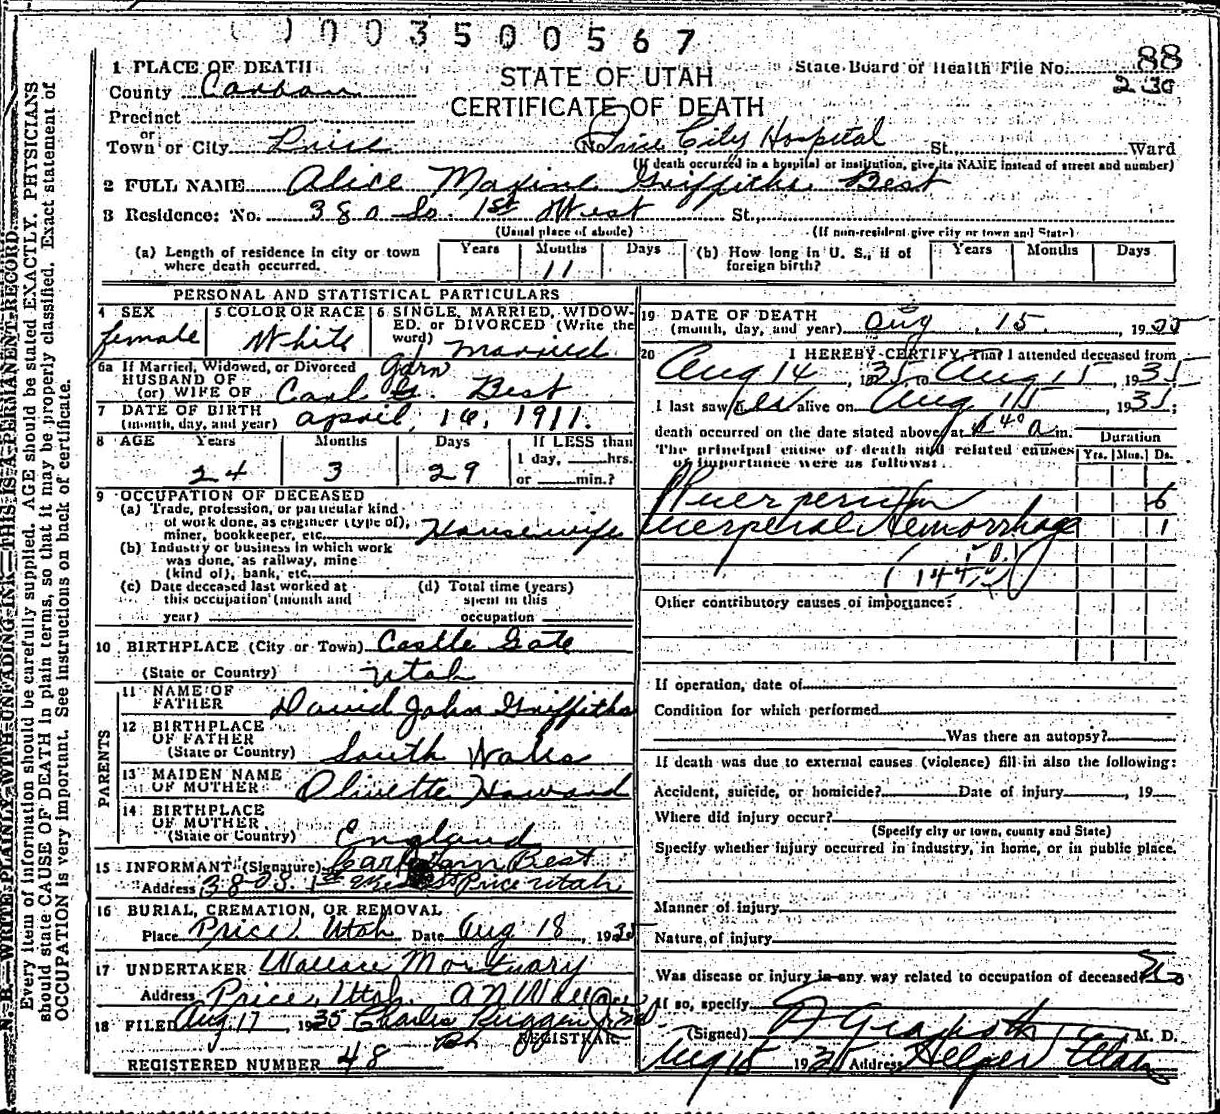 0003500567
1 PLACE OF DEATH
STATE OF UTAH
CERTIFICATE OF DEATH
State Board of Health File No. 88
230
County Carbon
Precinct
or
Town or City Price No. Price City Hospital St. Ward
(If death occurred in a hospital or institution, give its NAME instead of street and number)
2 FULL NAME Alice Maxine Griffiths Best
3 Residence: No. 380 So. 1st West St.,
(Usual place of abode) (If non-resident give city or town and State)
(a) Length of residence in city or town where death occurred. Years Months 11 Days
(b) How long in U. S., if of foreign birth? Years Months Days
PERSONAL AND STATISTICAL PARTICULARS
4 SEX
female
5 COLOR OR RACE
White
6 SINGLE, MARRIED, WIDOW-
ED, or DIVORCED (Write the
word) married
6a If Married, Widowed, or Divorced
HUSBAND OF
(or) WIFE OF Carl G. Best
Garn
7 DATE OF BIRTH
(month, day, and year) april, 16, 1911.
8 AGE Years Months Days If LESS than
1 day, hrs.
or min.?
24 3 29
9 OCCUPATION OF DECEASED
(a) Trade, profession, or particular kind
of work done, as engineer (type of),
miner, bookkeeper, etc. Housewife
(b) Industry or business in which work
was done, as railway, mine
(kind of), bank, etc.
(c) Date deceased last worked at
this occupation (month and
year)
(d) Total time (years)
spent in this
occupation
10 BIRTHPLACE (City or Town) Castle Gate
(State or Country) Utah
PARENTS
11 NAME OF
FATHER David John Griffiths
12 BIRTHPLACE
OF FATHER
(State or Country) South Wales
13 MAIDEN NAME
OF MOTHER Olivette Howard
14 BIRTHPLACE
OF MOTHER
(State or Country) England
15 INFORMANT (Signature) Carl Garn Best
Address 380 S. 1st West Price Utah
16 BURIAL, CREMATION, OR REMOVAL
Place Price Utah Date Aug 18, 1935
17 UNDERTAKER Wallace Mortuary
Address Price, Utah. A N Wallace
18 FILED Aug 17, 1935 Charles Ruggeri Jr md
REGISTRAR
REGISTERED NUMBER 48
19 DATE OF DEATH
(month, day, and year) Aug 15. 1935
20 I HEREBY CERTIFY, That I attended deceased from
Aug 14, 1935, to Aug 15, 1935
I last saw her alive on Aug 15, 1935;
death occurred on the date stated above, at 640 a m.
The principal cause of death and related causes
of importance were as follows:
Duration
Yrs. Mos. Ds.
Puerperium 6
Puerperal Hemorrhage 1
Other contributory causes of importance:
If operation, date of
Condition for which performed
Was there an autopsy?
If death was due to external causes (violence) fill in also the following:
Accident, suicide, or homicide? Date of injury, 19
Where did injury occur?
(Specify city or town, county and State)
Specify whether injury occurred in industry, in home, or in public place.
Manner of injury
Nature of injury
Was disease or injury in any way related to occupation of deceased? No
If so, specify
(Signed) M. D.
Aug 15 1935 Address Helper Utah
N. B.—WRITE PLAINLY WITH UNFADING INK—THIS IS A PERMANENT RECORD.
Every item of information should be carefully supplied. AGE should be stated EXACTLY. PHYSICIANS
should state CAUSE OF DEATH in plain terms, so that it may be properly classified. Exact statement of
OCCUPATION is very important. See instructions on back of certificate.